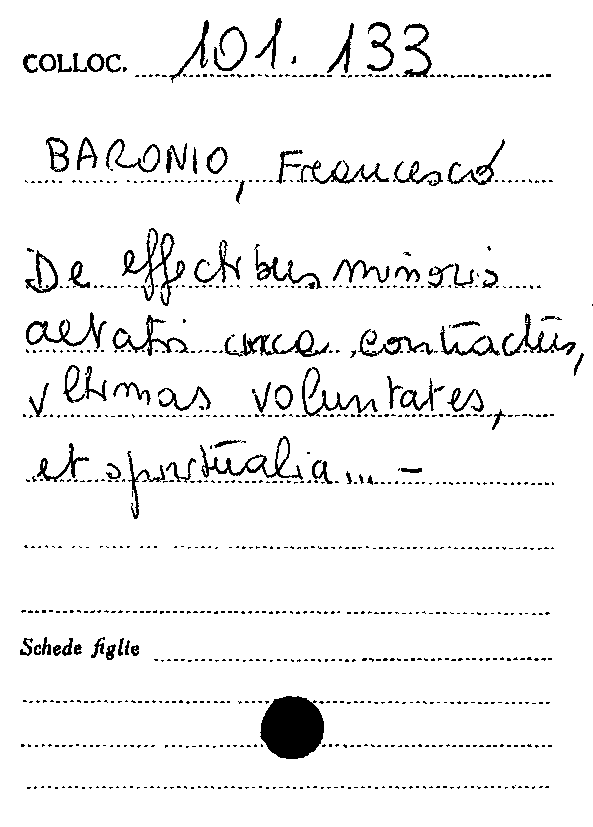 COLLOC. 101. 133
BARONIO, Francesco
De effectibus minoris
aetatis circa contractus,
vltimas voluntates,
et spiritualia... -
Schede figlie